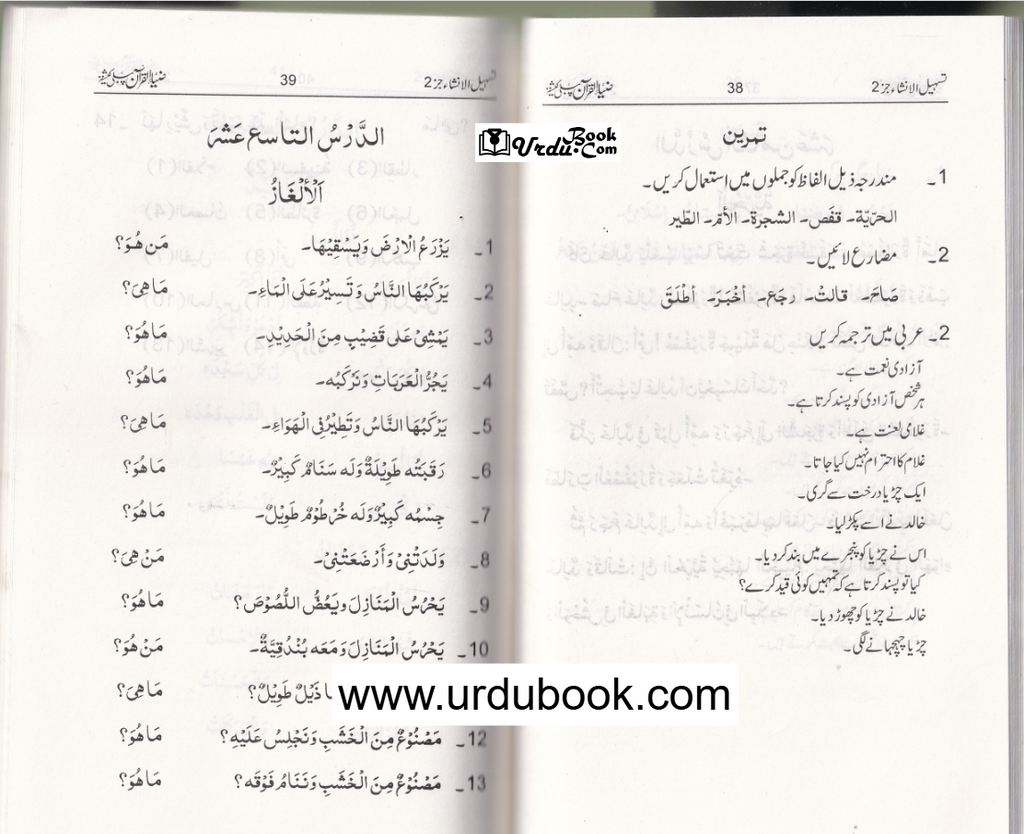 تسہیل الانشاء جز 2 38 ضیاء القرآن پبلی کیشنز
تمرین
1۔ مندرجہ ذیل الفاظ کو جملوں میں استعمال کریں۔
الحرّیّة۔ قفَص۔ الشجرة۔ الأمّ۔ الطّیر
2۔ مضارع لائیں۔
صَاحَ۔ قالتْ۔ رجَع۔ أخْبَرَ۔ أطْلَقَ
2۔ عربی میں ترجمہ کریں
آزادی نعمت ہے۔
ہر شخص آزادی کو پسند کرتا ہے۔
غلامی لعنت ہے۔
غلام کا احترام نہیں کیا جاتا۔
ایک چڑیا درخت سے گری۔
خالد نے اسے پکڑ لیا۔
اس نے چڑیا کو پنجرے میں بند کر دیا۔
کیا تو پسند کرتا ہے کہ تمہیں کوئی قید کرے؟
خالد نے چڑیا کو چھوڑ دیا۔
چڑیا چہچہانے لگی۔
تسہیل الانشاء جز 2 39 ضیاء القرآن پبلی کیشنز
الدَّرْسُ التاسع عَشَر
اَلْأَلْغَازُ
1۔ يَزْرَعُ الْاَرْضَ وَيَسْقِيْهَا۔ مَن هُوَ؟
2۔ يَرْكَبُهَا النَّاسُ وَتَسِيْرُ عَلَى الْمَاءِ۔ مَا هِيَ؟
3۔ يَمْشِيْ عَلٰى قَضِيْبٍ مِنَ الْحَدِيْدِ۔ مَا هُوَ؟
4۔ يَجُرُّ الْعَرَبَاتِ وَنَرْكَبُه۔ مَا هُوَ؟
5۔ يَرْكَبُهَا النَّاسُ وَتَطِيْرُ فِي الْهَوَاءِ۔ مَا هِيَ؟
6۔ رَقَبَتُه طَوِيْلَةٌ وَلَه سَنَامٌ كَبِيْرٌ۔ مَا هُوَ؟
7۔ جِسْمُه كَبِيْرٌ وَلَه خُرْطُوْمٌ طَوِيْلٌ۔ مَا هُوَ؟
8۔ وَلَدَتْنِيْ وَأَرْضَعَتْنِيْ۔ مَنْ هِيَ؟
9۔ يَحْرُسُ الْمَنَازِلَ ويَعُضُّ اللُّصُوْصَ؟ مَا هُوَ؟
10۔ يَحْرُسُ الْمَنَازِلَ وَمَعَه بُنْدُقِيَّةٌ۔ مَنْ هُوَ؟
ذَيْلٌ طَوِيْلٌ؟ مَا هِيَ؟
12۔ مَصْنُوْعٌ مِنَ الْخَشَبِ وَنَجْلِسُ عَلَيْهِ؟ مَا هُوَ؟
13۔ مَصْنُوْعٌ مِنَ الْخَشَبِ وَنَنَامُ فَوْقَه؟ مَا هُوَ؟
Urdu Book .Com
www.urdubook.com